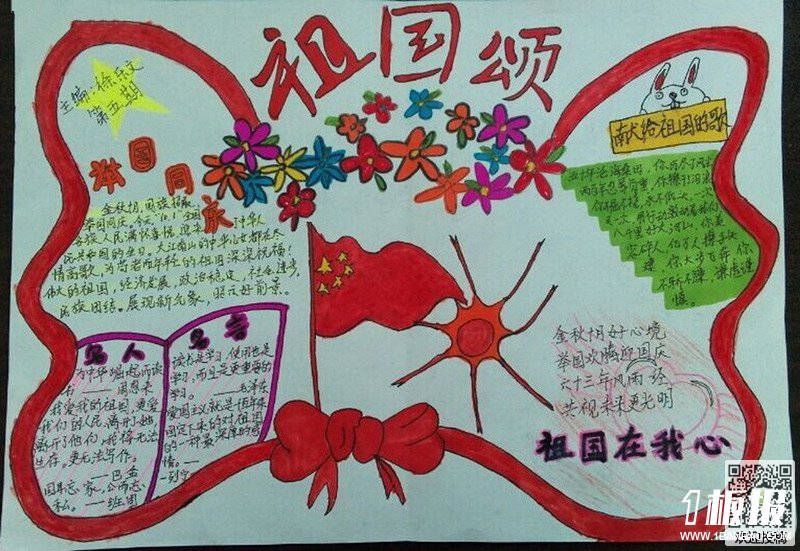 祖国颂
主编:徐乐文
第五期
举国同庆
金秋十月,国旗招展,
举国同庆。今天"10.1"全国
各族人民满怀喜悦,迎来
民共和国的生日。大江南北的中华儿女都在尽
情高歌,为尚老而年轻的祖国深深祝福!
伟大的祖国,经济发展,政治稳定,社会进步,
民族团结。展现新气象,昭示好前景。
名人
为中华崛起而读
书——周恩来
我爱我的祖国,更爱
我们的人民,离开了她,
离开了他们,我将无法
生存。更无法写作。
——巴金
国耳忘家,公而忘
私。——班固
名言
读书是学习,使用也是
学习,而且是更重要的
学习。——毛泽东
爱国主义就是千百年来
固定下来的对祖国
的一种最深厚的感
情。
—列宁
献给祖国的歌
五十年沧海桑田,你历尽了风
你大步飞奔,你
不骄不躁,谦虚谨
慎。
金秋十月好心境
举国欢腾迎国庆
六十三年风雨经
共视未来更光明
祖国在我心
1板报
WWW.1BANBAO.COM
欢迎投稿